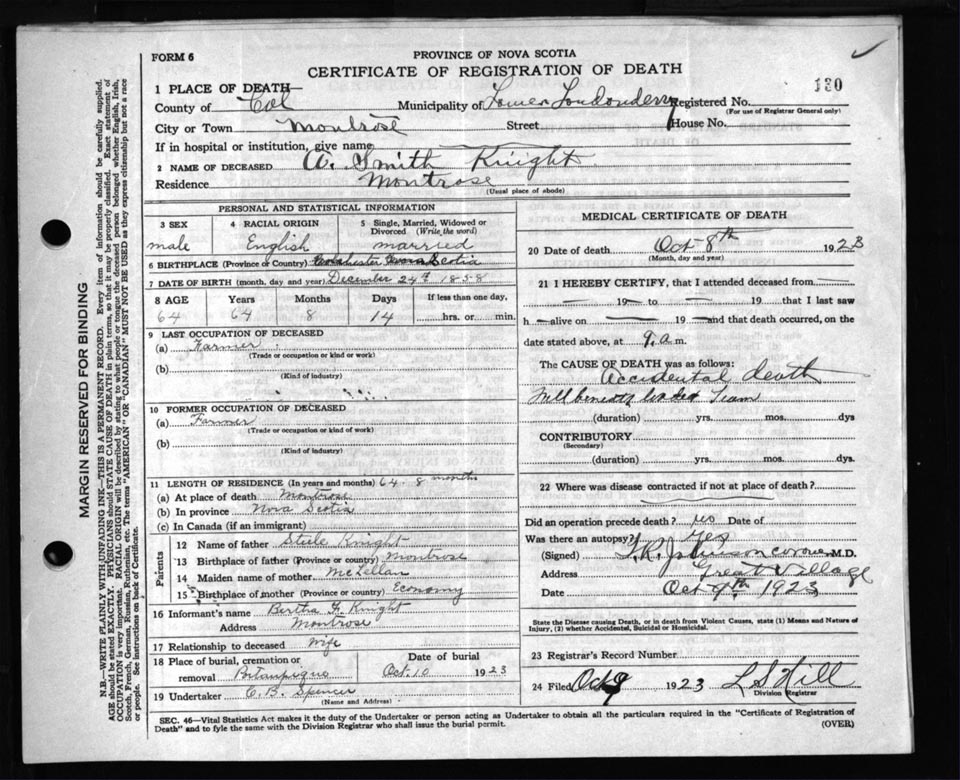 FORM 6
PROVINCE OF NOVA SCOTIA
CERTIFICATE OF REGISTRATION OF DEATH
130
1 PLACE OF DEATH—
County of Col Municipality of Lower Londonderry Registered No.
(For use of Registrar General only)
City or Town Montrose Street House No.
If in hospital or institution, give name
2 NAME OF DECEASED A. Smith Knight
Residence Montrose
(Usual place of abode)
PERSONAL AND STATISTICAL INFORMATION
3 SEX 4 RACIAL ORIGIN 5 Single, Married, Widowed or Divorced (Write the word)
male English married
6 BIRTHPLACE (Province or Country) Colchester Nova Scotia
7 DATE OF BIRTH (month, day and year) December 24th 1858
8 AGE Years Months Days If less than one day,
64 64 8 14 hrs. or min.
9 LAST OCCUPATION OF DECEASED
(a) Farmer
(Trade or occupation or kind of work)
(b)
(Kind of industry)
10 FORMER OCCUPATION OF DECEASED
(a) Farmer
(Trade or occupation or kind of work)
(b)
(Kind of industry)
11 LENGTH OF RESIDENCE (In years and months) 64. 8 months
(a) At place of death Montrose
(b) In province Nova Scotia
(c) In Canada (if an immigrant)
Parents
12 Name of father Steele Knight
13 Birthplace of father (Province or country) Montrose
14 Maiden name of mother McLellan
15 Birthplace of mother (Province or country) Economy
16 Informant's name Bertha F. Knight
Address Montrose
17 Relationship to deceased Wife
18 Place of burial, cremation or removal Date of burial
Oct. 10 1923
19 Undertaker C. B. Spencer
(Name and Address)
MEDICAL CERTIFICATE OF DEATH
20 Date of death Oct 8th 1923
(Month, day and year)
21 I HEREBY CERTIFY, that I attended deceased from
19 to 19 that I last saw
h alive on 19 and that death occurred, on the
date stated above, at 9. a. m.
The CAUSE OF DEATH was as follows:
Accidental death
Fell beneath loaded Team
(duration) yrs. mos. dys
CONTRIBUTORY
(Secondary)
(duration) yrs. mos. dys
22 Where was disease contracted if not at place of death?
Did an operation precede death? no Date of
Was there an autopsy? Yes
(Signed) T. R. Johnson coroner M.D.
Address Great Village
Date Oct 9th 1923
State the Disease causing Death, or in death from Violent Causes, state (1) Means and Nature of Injury, (2) whether Accidental, Suicidal or Homicidal.
23 Registrar's Record Number
24 Filed Oct 9 1923 L S Hill
Division Registrar
SEC. 46—Vital Statistics Act makes it the duty of the Undertaker or person acting as Undertaker to obtain all the particulars required in the "Certificate of Registration of Death" and to fyle the same with the Division Registrar who shall issue the burial permit.
(OVER)
MARGIN RESERVED FOR BINDING
N.B.—WRITE PLAINLY WITH UNFADING INK—THIS IS A PERMANENT RECORD. Every item of information should be carefully supplied.
AGE should be stated EXACTLY. PHYSICIANS should STATE CAUSE OF DEATH in plain terms, so that it may be properly classified. Exact statement of
OCCUPATION is very important. RACIAL ORIGIN will be described by stating to what people or tongue the deceased person belonged whether English, Irish,
Scotch, French, German, Russian, Ruthenian, etc. The terms "AMERICAN" OR "CANADIAN" MUST NOT BE USED as they express citizenship but not a race
or people. See instructions on back of Certificate.